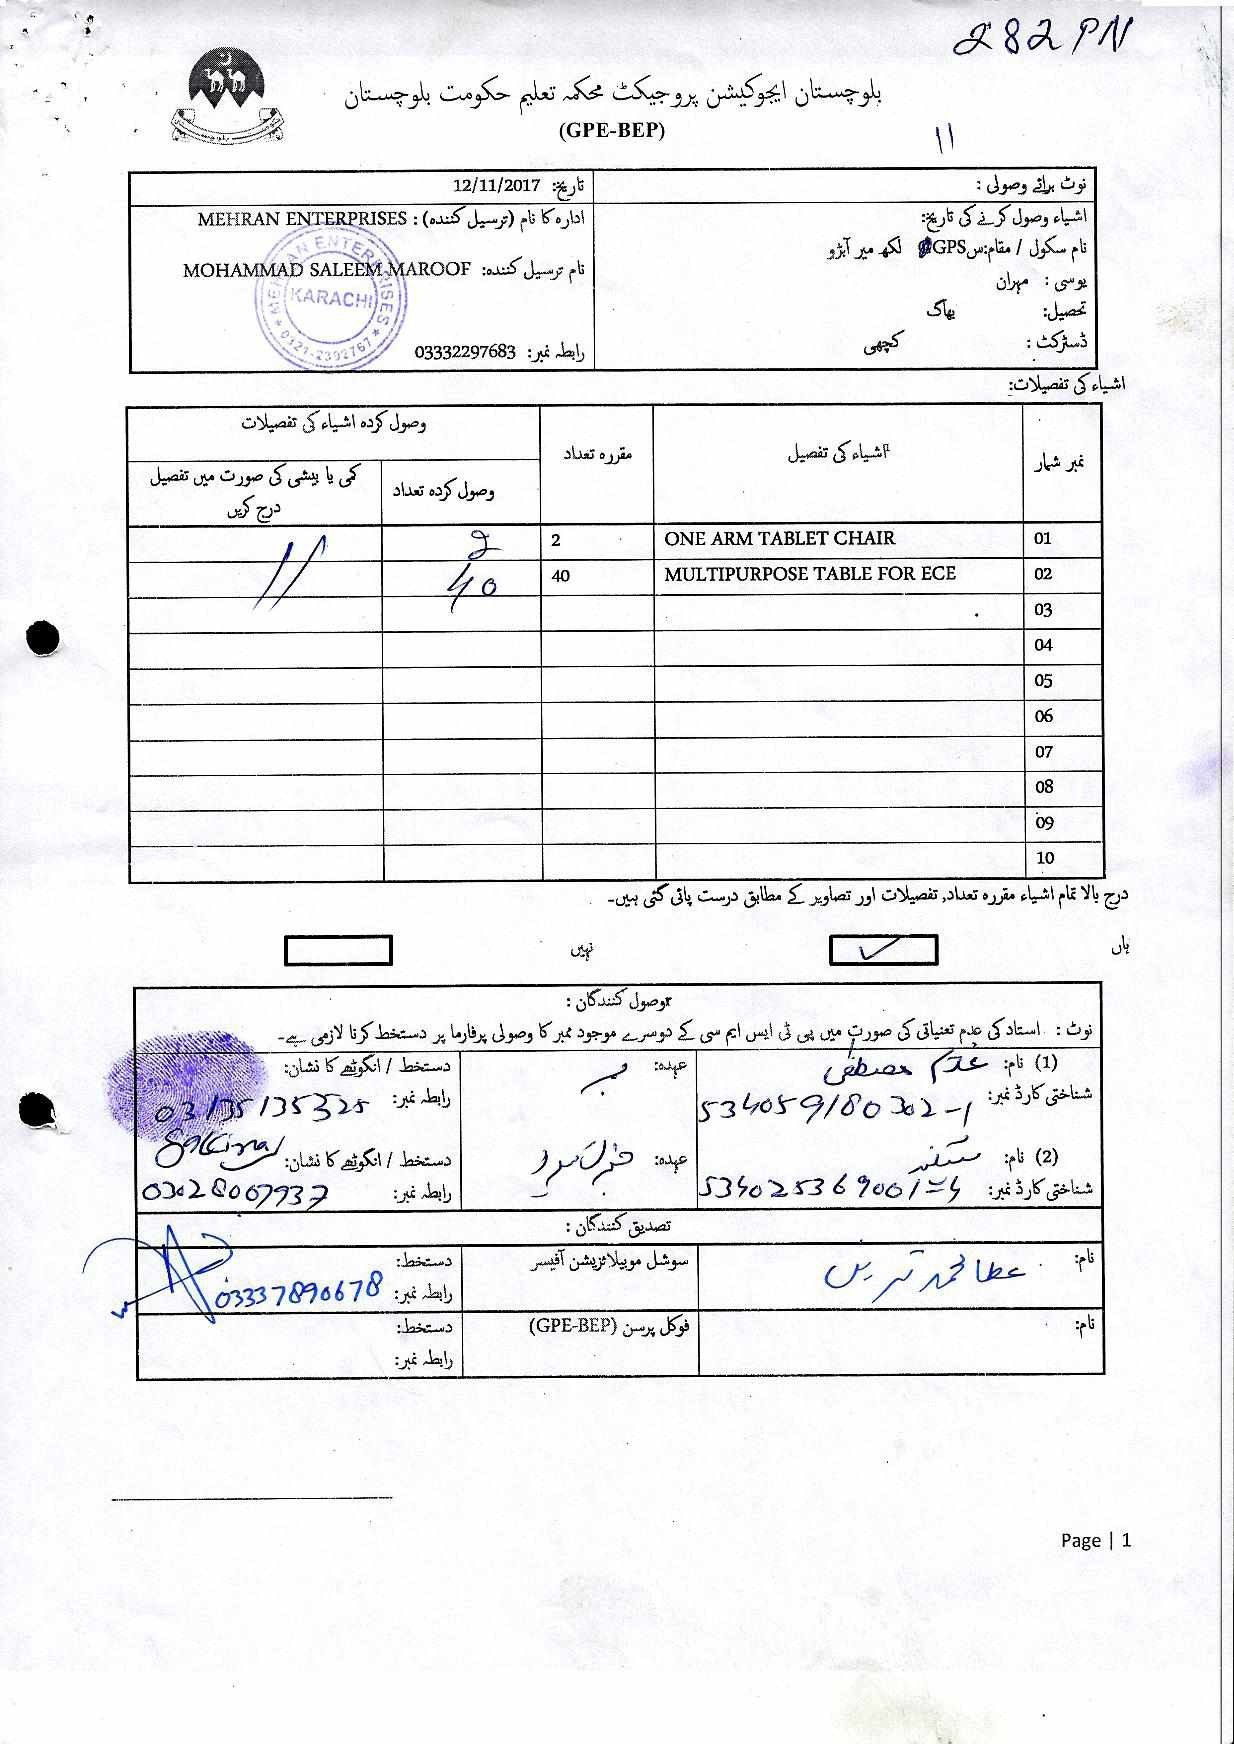 282 PN
بلوچستان ایجوکیشن پروجیکٹ محکمہ تعلیم حکومت بلوچستان
(GPE-BEP)
11
نوٹ برائے وصولی :
تاریخ: 12/11/2017
اشیاء وصول کرنے کی تاریخ:
ادارہ کا نام (ترسیل کنندہ) : MEHRAN ENTERPRISES
نام سکول / مقام:س GPS لکھ میر آبڑو
نام ترسیل کنندہ: MOHAMMAD SALEEM MAROOF
یوسی : مہران
تحصیل: بھاگ
ڈسٹرکٹ : کچھی
رابطہ نمبر: 03332297683
MEHRAN ENTERPRISES
KARACHI
0321-2392767
اشیاء کی تفصیلات:
نمبر شمار اشیاء کی تفصیل مقررہ تعداد وصول کردہ اشیاء کی تفصیلات
وصول کردہ تعداد کمی یا بیشی کی صورت میں تفصیل درج کریں
01 ONE ARM TABLET CHAIR 2 2
02 MULTIPURPOSE TABLE FOR ECE 40 40
03
04
05
06
07
08
09
10
درج بالا تمام اشیاء مقررہ تعداد, تفصیلات اور تصاویر کے مطابق درست پائی گئی ہیں۔
ہاں ✓ نہیں
وصول کنندگان :
نوٹ : استاد کی عدم تعیناتی کی صورت میں پی ٹی ایس ایم سی کے دوسرے موجود ممبر کا وصولی پرفارما پر دستخط کرنا لازمی ہے۔
(1) نام: غلام مصطفی عہدہ: دستخط / انگوٹھے کا نشان:
شناختی کارڈ نمبر: 534059180302-1 رابطہ نمبر: 03135135325
(2) نام: سکینہ عہدہ: دستخط / انگوٹھے کا نشان: Sakina
شناختی کارڈ نمبر: 534025369001-4 رابطہ نمبر: 03028067937
تصدیق کنندگان :
نام: عطا محمد ترین سوشل موبیلائزیشن آفیسر دستخط:
رابطہ نمبر: 03337890678
نام: فوکل پرسن (GPE-BEP) دستخط:
رابطہ نمبر:
Page | 1